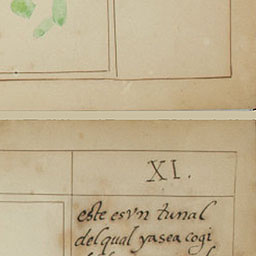 XI.
este es vn tunal
del qual ya sea cogi